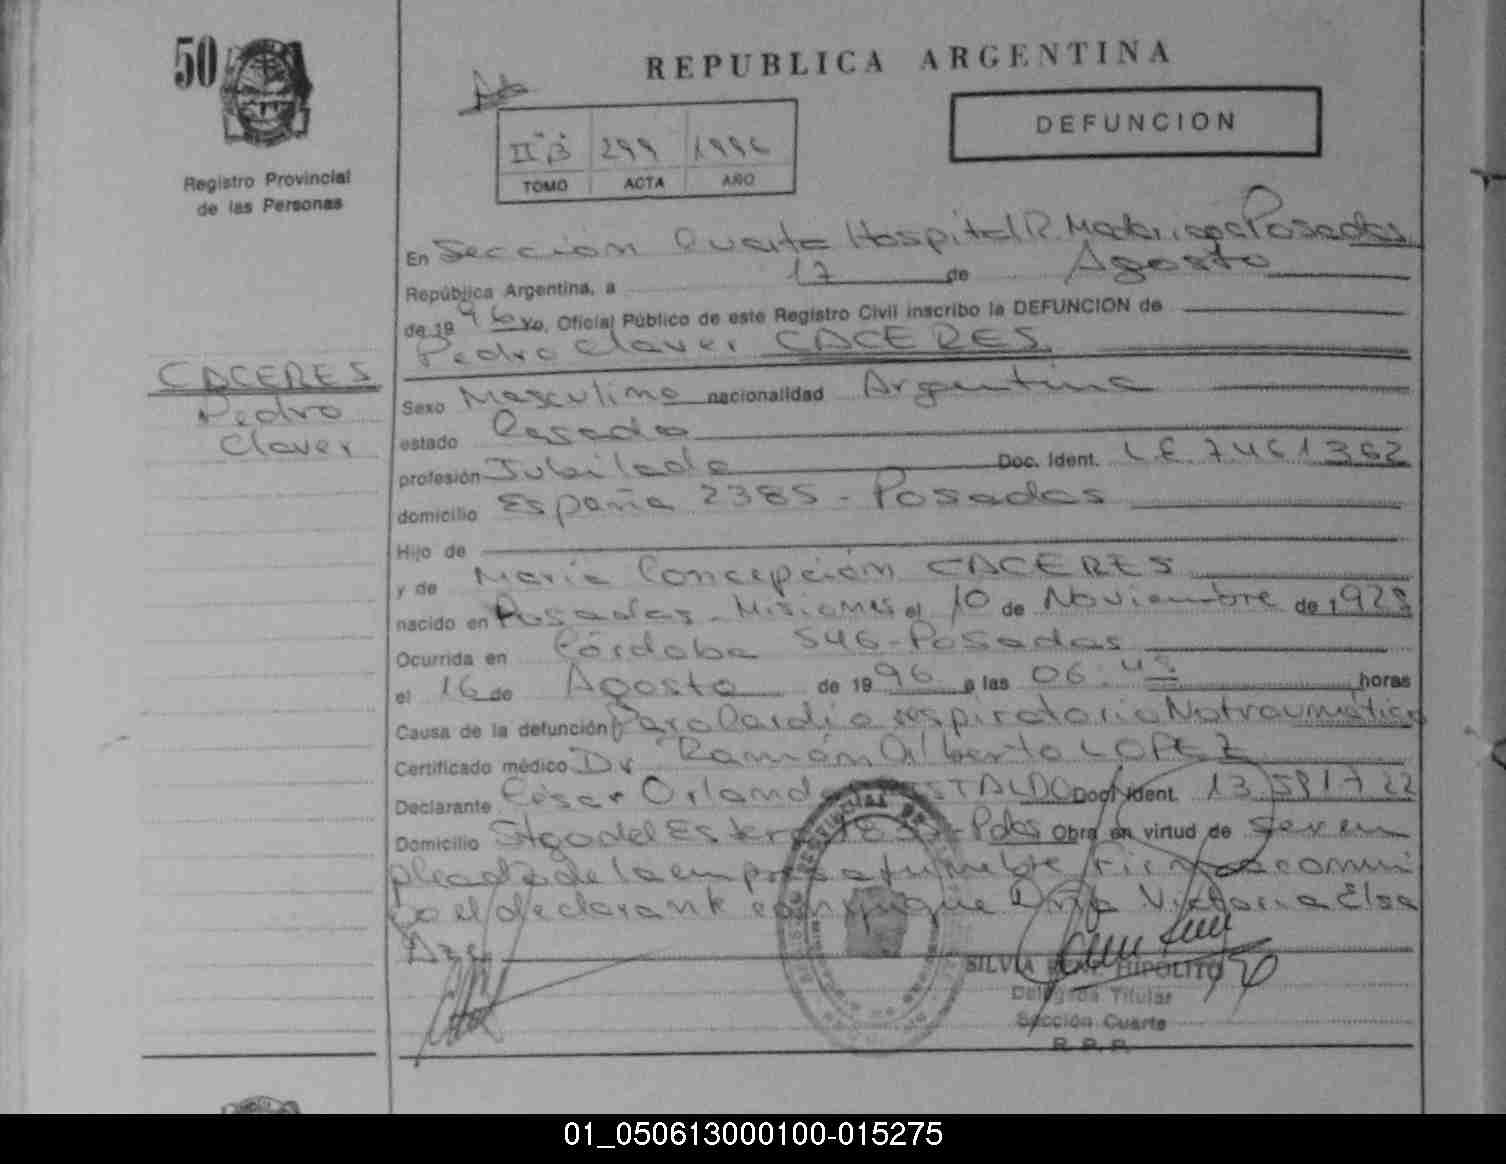 50
REPUBLICA ARGENTINA
DEFUNCION
II B 299 1996
TOMO ACTA AÑO
Registro Provincial
de las Personas
En Sección Cuarta Hospital R. Madariaga Posadas
República Argentina, a 17 de Agosto
de 1996 yo, Oficial Público de este Registro Civil inscribo la DEFUNCION de
Pedro Claver CACERES
CACERES
Pedro
Claver
Sexo Masculino nacionalidad Argentina
estado Casado
profesión Jubilado Doc. Ident. L E 7461362
domicilio España 2385 - Posadas
Hijo de
y de María Concepción CACERES
nacido en Posadas - Misiones el 10 de Noviembre de 1928
Ocurrida en Córdoba 546 - Posadas
el 16 de Agosto de 1996 a las 06:45 horas
Causa de la defunción Paro Cardio respiratorio No traumático
Certificado médico Dr Ramón Alberto LOPEZ
Declarante César Orlando Doc. Ident. 13.581722
Domicilio Stgo del Estero - Pdas Obra en virtud de ser em
pleado de la empresa fúnebre
el declarante conyugue Victoria Elsa
SILVIA HIPOLITO
Delegada Titular
Sección Cuarta
R. P. P.
01_050613000100-015275